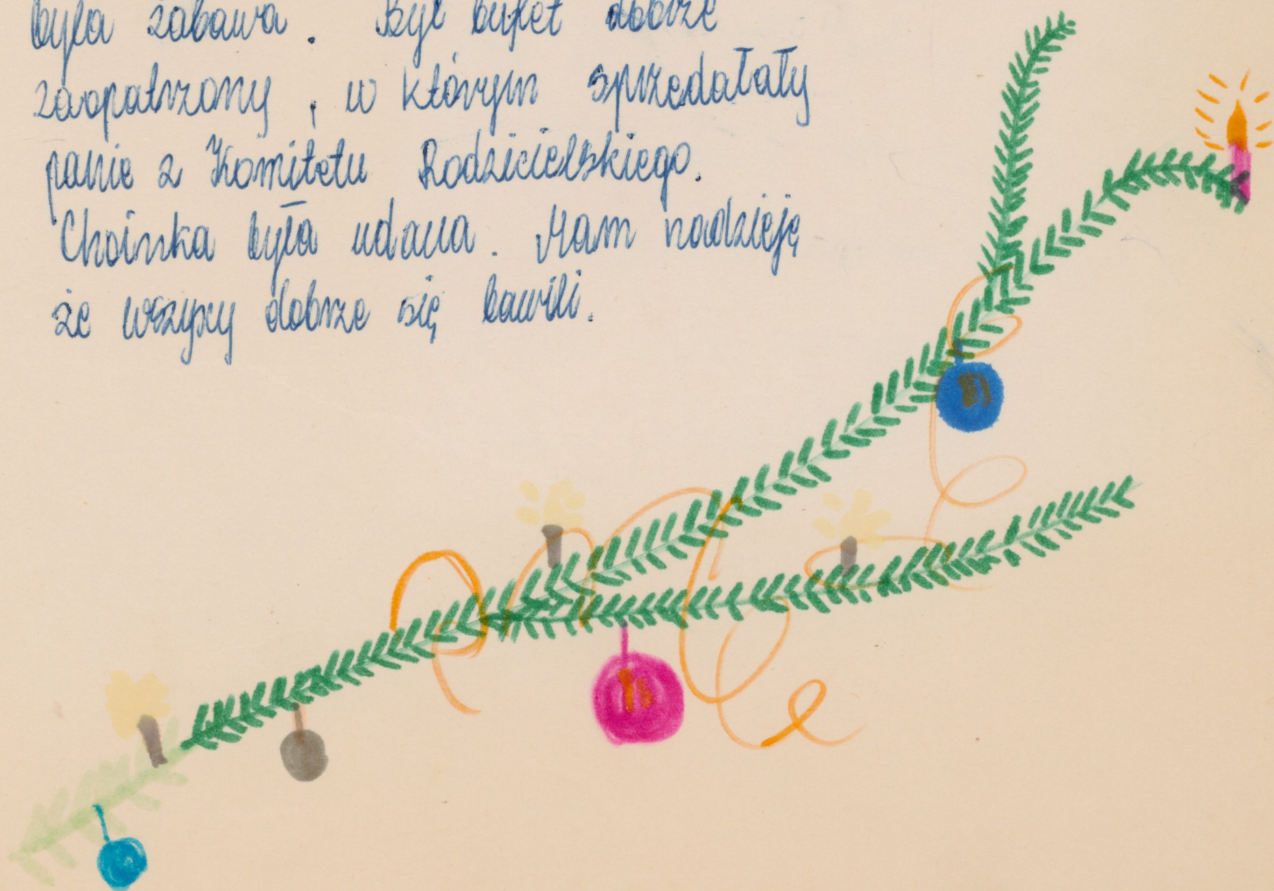 była zabawa. Był bufet dobrze
zaopatrzony, w którym sprzedałały
panie z Komitetu Rodzicielskiego.
Choinka była udana. Mam nadzieję
że wszyscy dobrze się bawili.